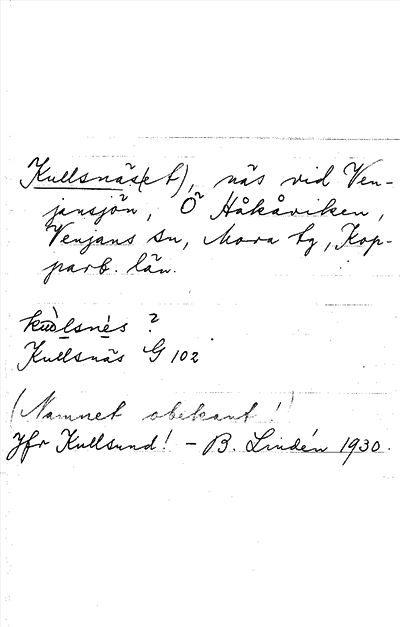 Kullsnäs(et), näs vid Ven-
jansjön, Ö Håkåviken,
Venjans sn, Mora tg, Kop-
parb. län.
kùolsnès ?
Kullsnäs G 102
(Namnet obekant!)
Jfr Kullsund! - B. Lindén 1930.